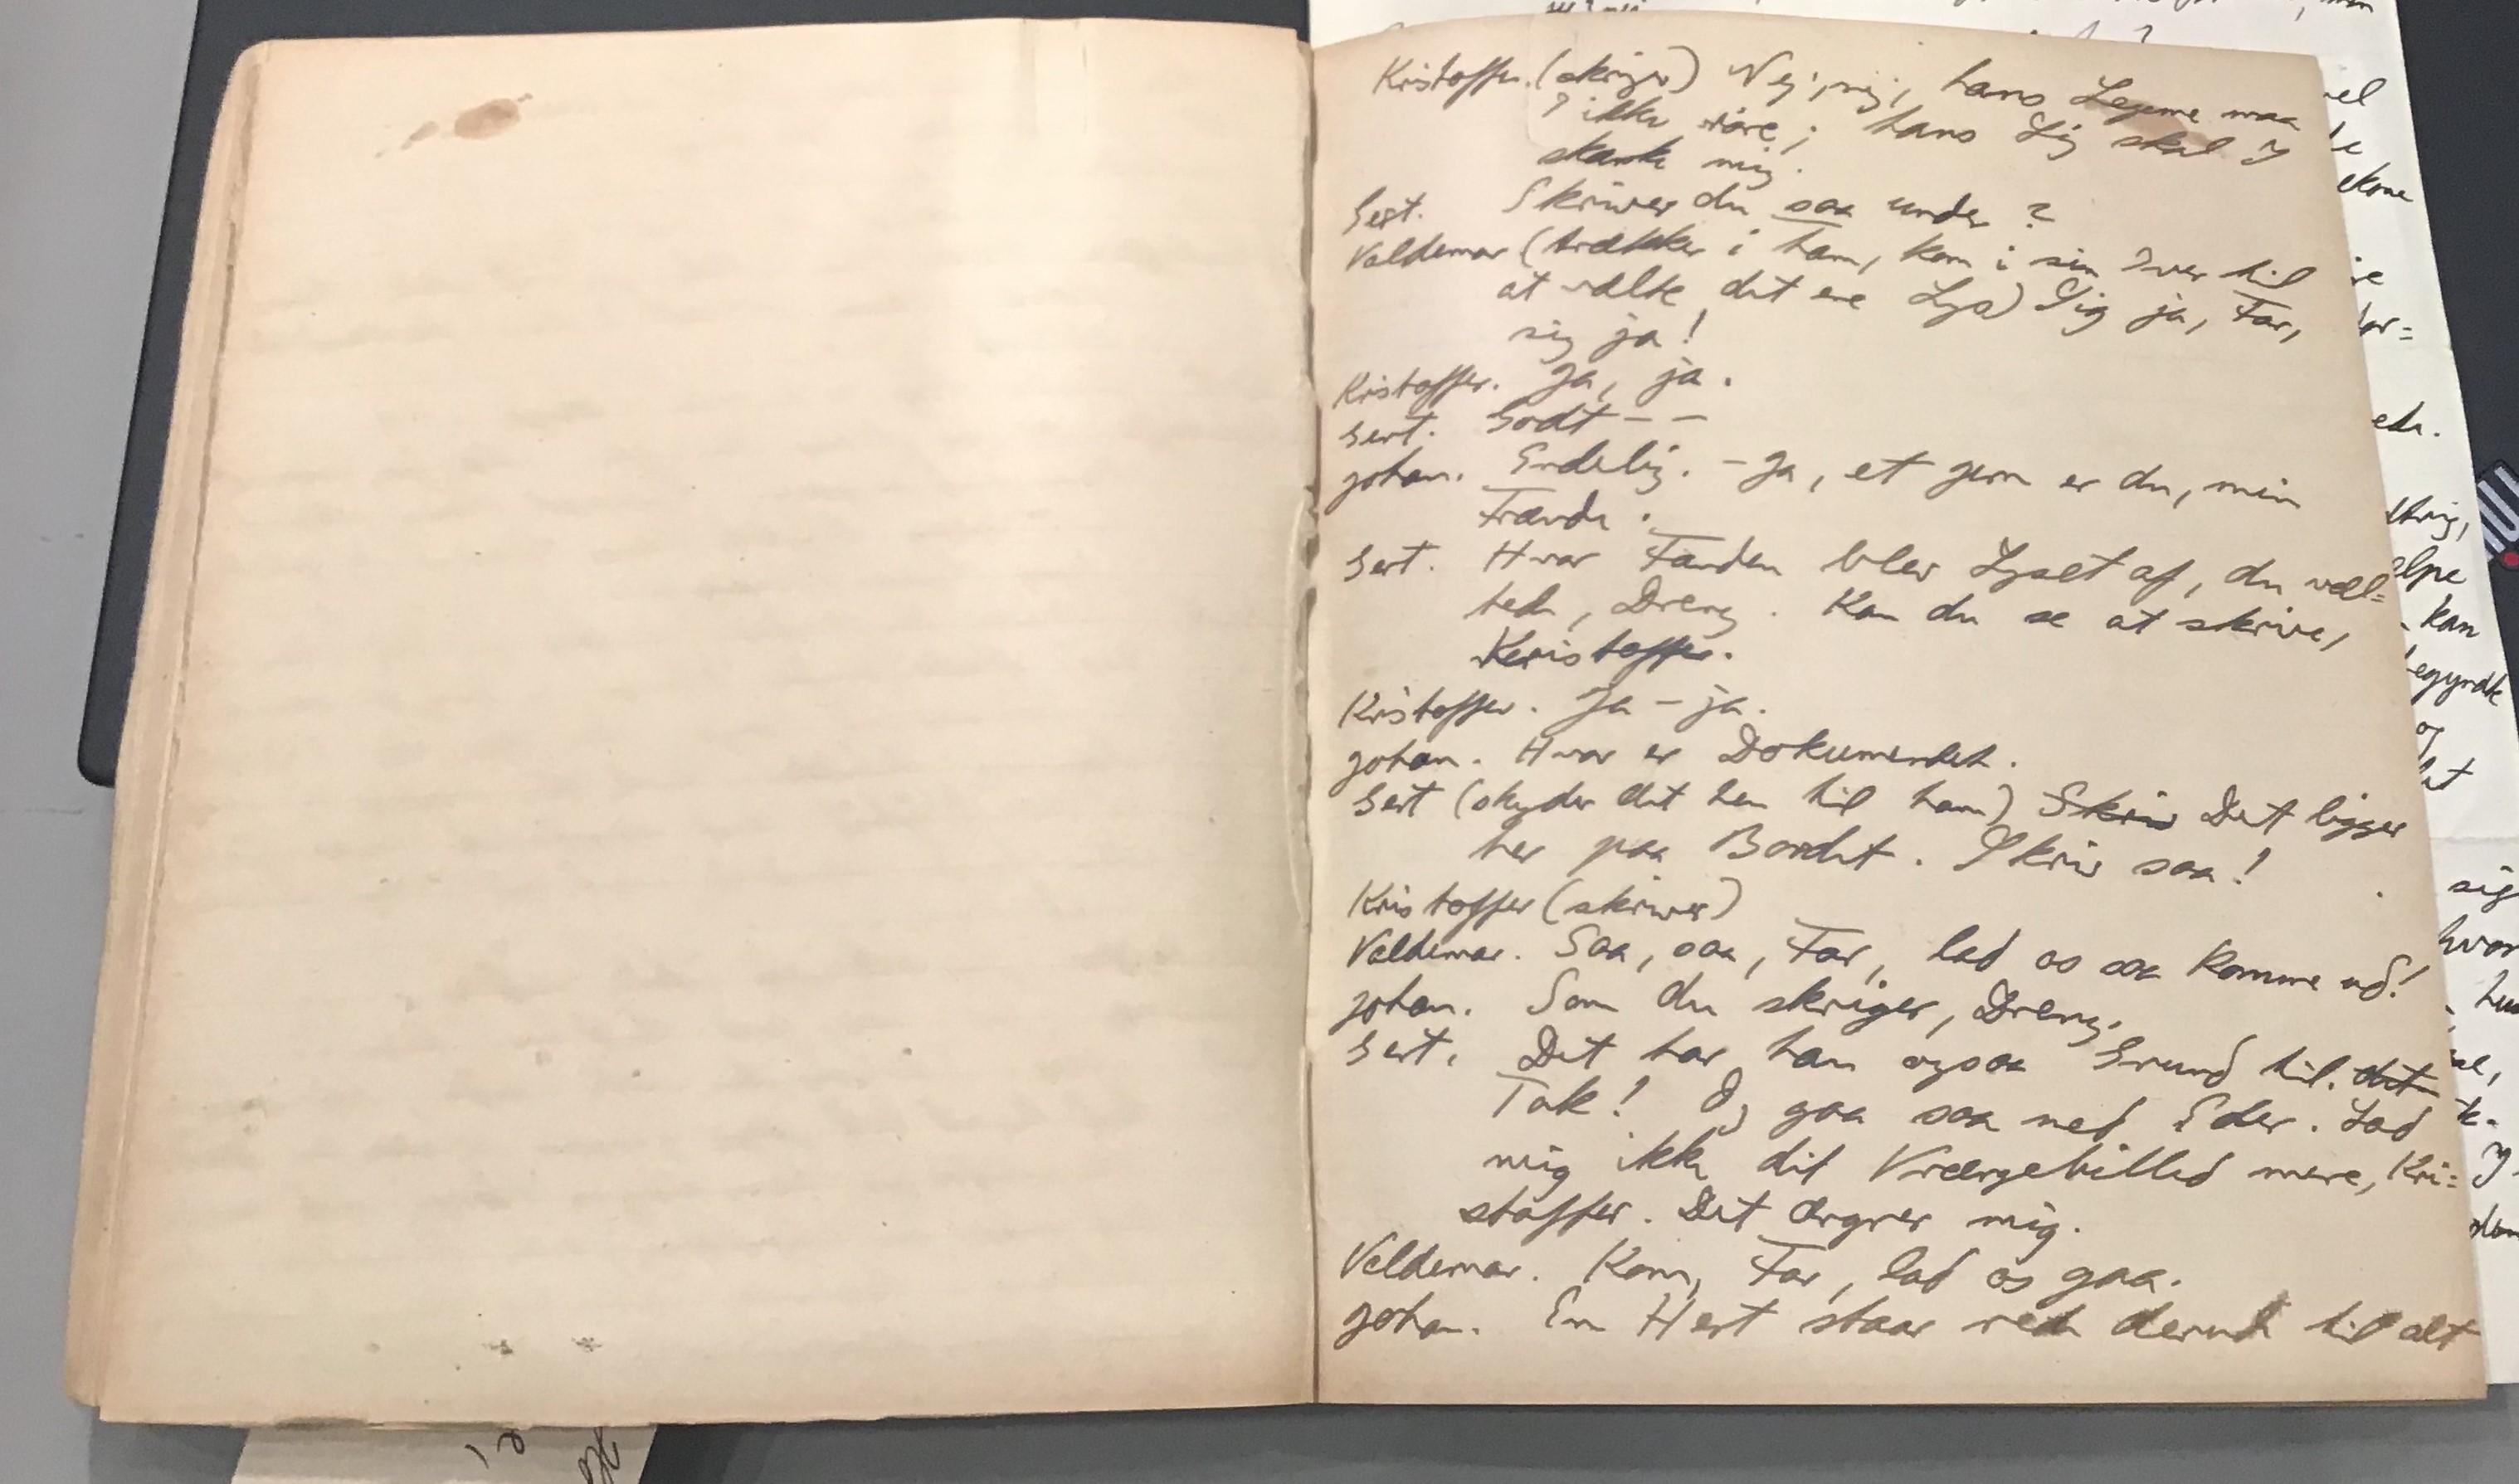 Kristoffer. (skriger) Nej, nej, hans Legeme maa
I ikke røre; hans Lig skal I
skænke mig.
Gert. Skriver du saa under?
Valdemar (trækker i ham, kom i sin Iver til
at vælte det ene Lys) Sig ja, Far,
sig ja!
Kristoffer. Ja, ja.
Gert. Godt – –
Johan. Endelig. – Ja, et Jern er du, min
Frænde.
Gert. Hvor Fanden blev Lyset af, du væl=
tede, Dreng. Kan du se at skrive,
Kristoffer.
Kristoffer. Ja – ja.
Johan. Hvor er Dokumentet.
Gert (skyder det hen til ham) Skriv Det ligger
her paa Bordet. Skriv saa!
Kristoffer (skriver)
Valdemar. Saa, saa, Far, lad os saa komme ud!
Johan. Som du skriger, Dreng.
Gert. Det har han ogsaa Grund til. det
Tak! Og gaa saa med Eder. Lad
mig ikke dit Vrængebilled mere, Kri=
stoffer. Det ærgrer mig.
Valdemar. Kom, Far, lad os gaa.
Johan. En Hest staar rede derude til alt
kan
begyndte
og
sig
hvor